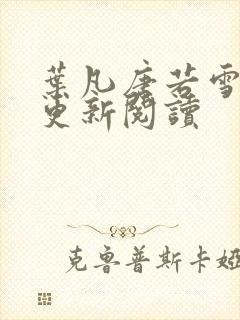 葉凡唐若雪
更新閱讀
克魯普斯卡婭